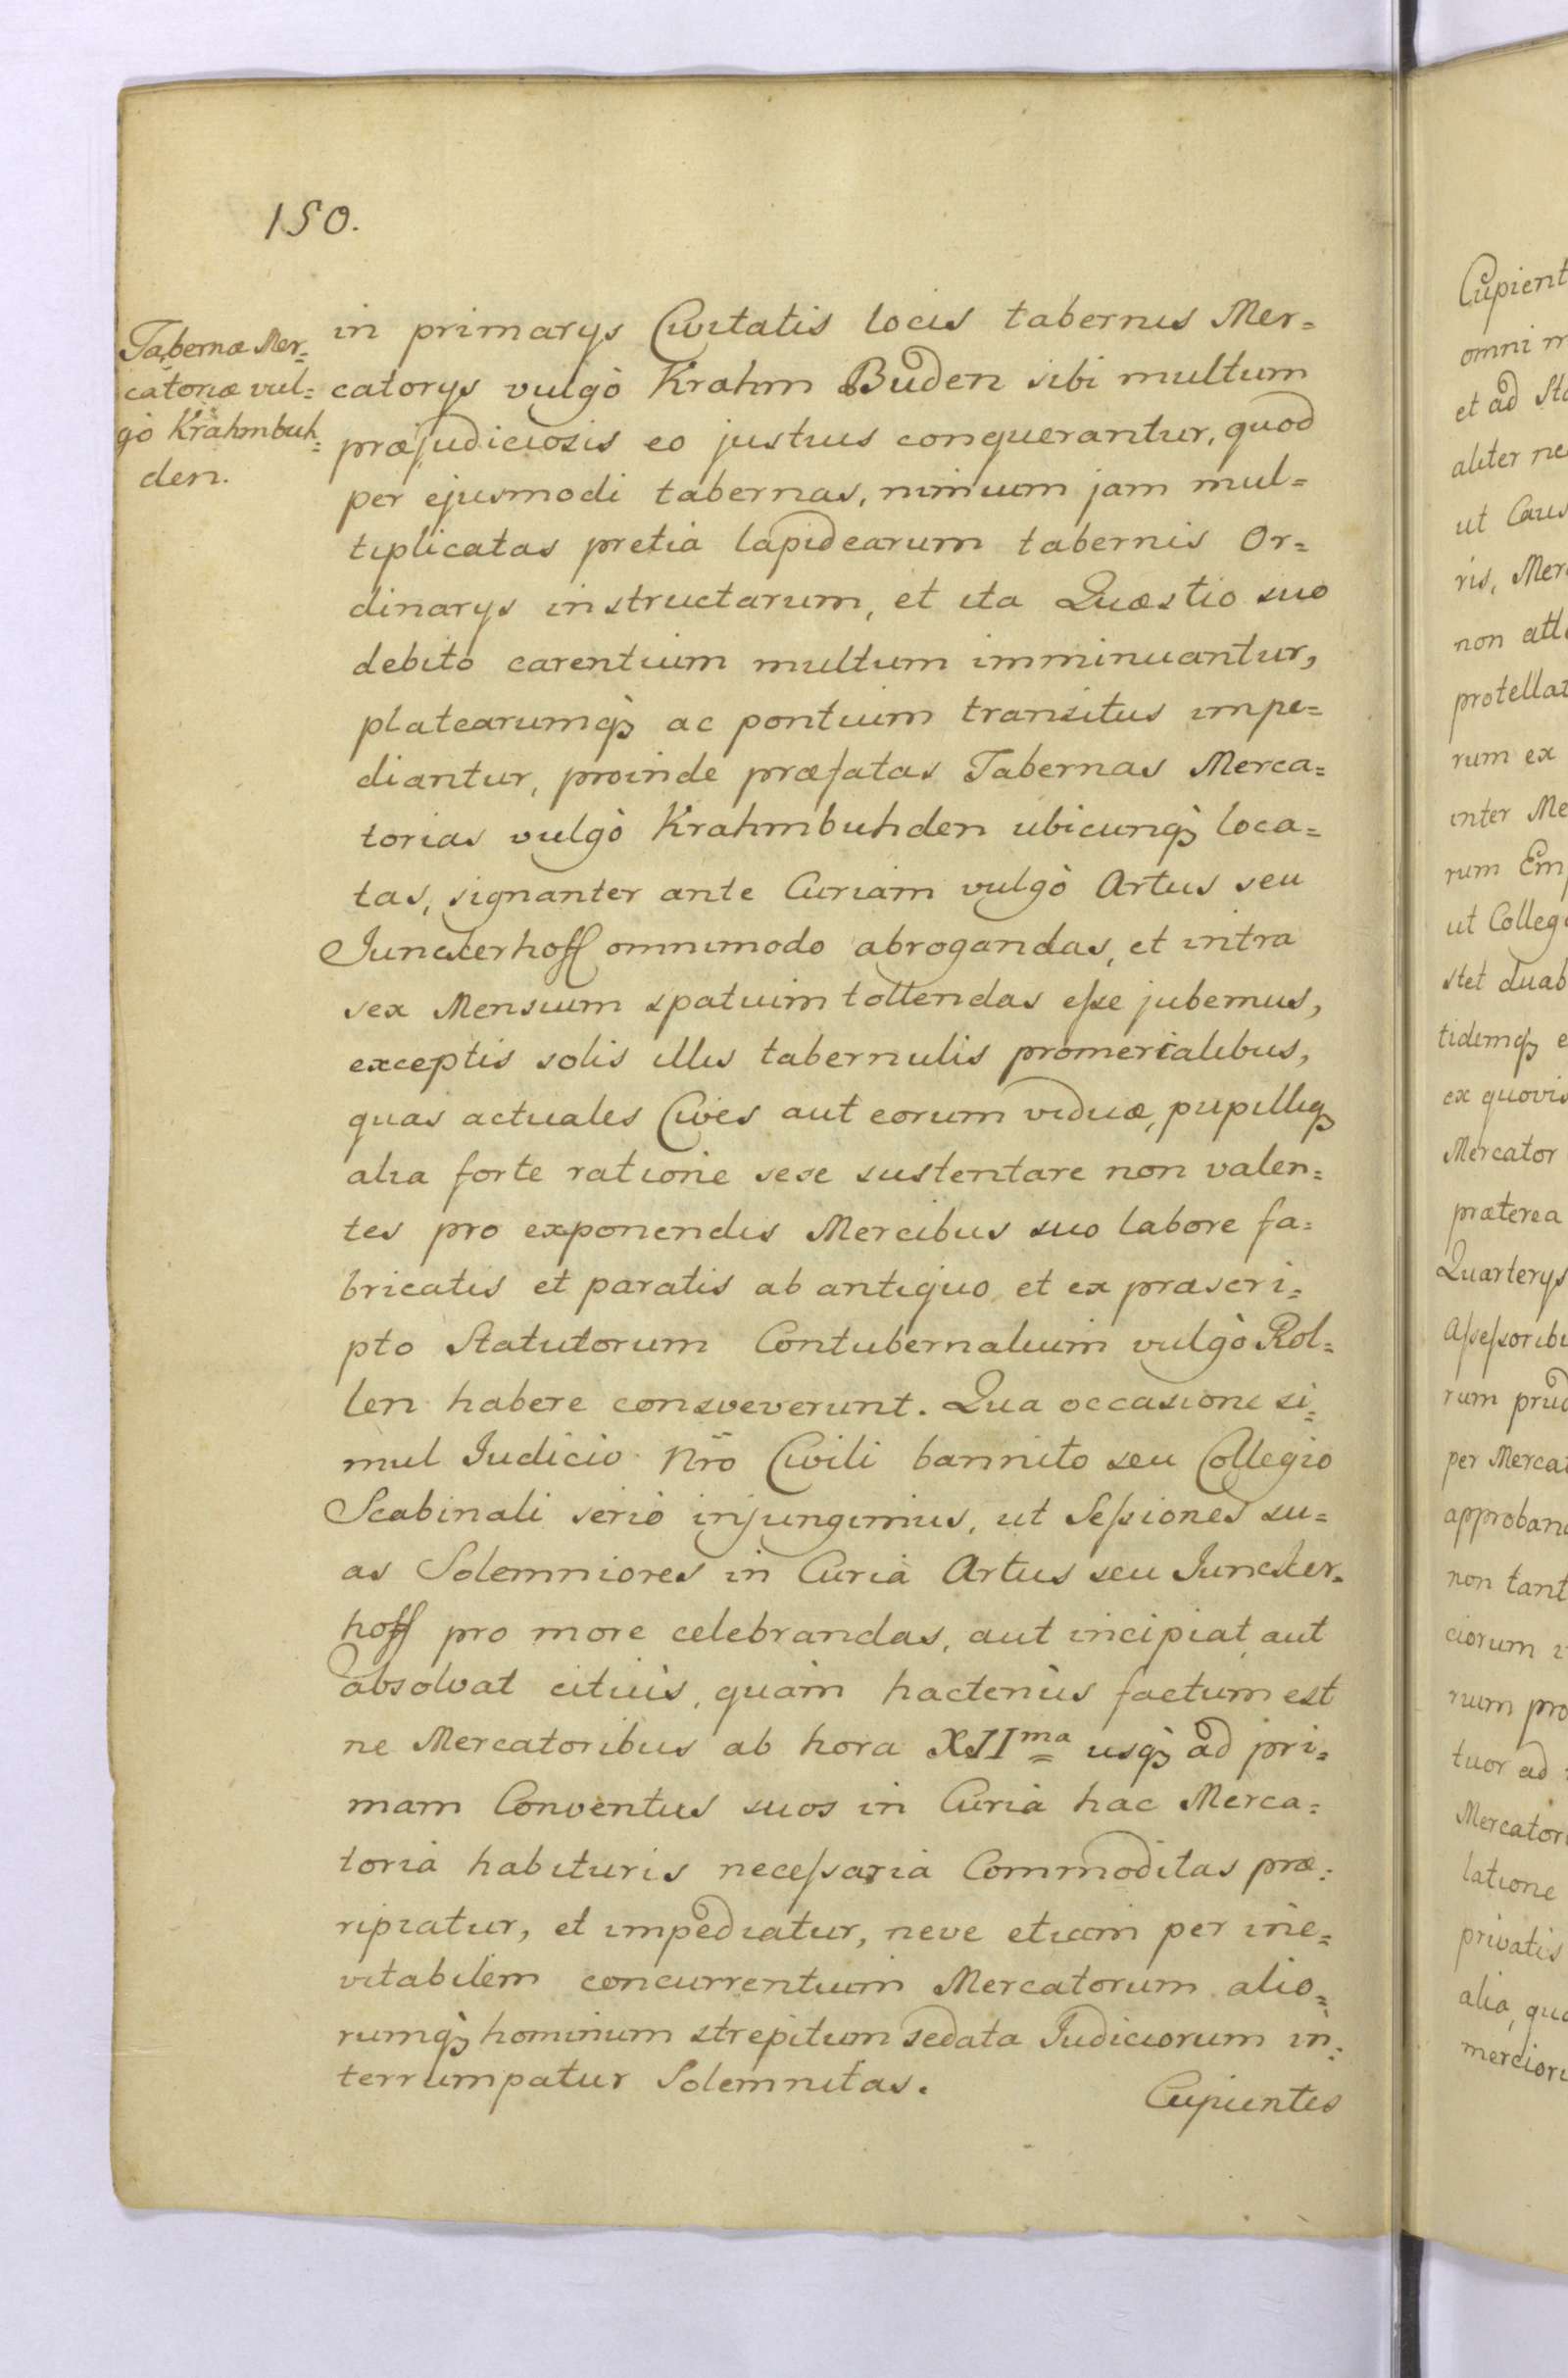 150.
Tabernæ Mer=
catoriæ vul=
gò Krahmbuh=
den.
in primarys Civitatis locis tabernis Mer=
catorys vulgò Krahm Buden sibi multum
præjudiciosis eo justius conquerantur, quod
per ejusmodi tabernas, nimium jam mul=
tiplicatas pretia lapidearum tabernis Or=
dinarys instructarum, et ita Quæstio suo
debito carentium multum imminuantur,
platearumqȝ ac pontium transitus impe=
diantur, proinde præfatas Tabernas Merca=
torias vulgò Krahmbuhden ubicunqȝ loca=
tas, signanter ante Curiam vulgò Artus seu
Junckerhoff omnimodo abrogandas, et intra
sex Mensium spatium tollendas eſse jubemus,
exceptis solis illis tabernulis promercalibus,
quas actuales Cives aut eorum viduæ, pupilliqȝ
alia forte ratione sese sustentare non valen=
tes pro exponendis Mercibus suo labore fa=
bricatis et paratis ab antiquo et ex præscri=
pto Statutorum Contubernalium vulgò Rol=
len habere consveverunt. Qua occasione si=
mul Judicio Nr̃o Civili bannito seu Collegio
Scabinali seriò injungimus, ut Seſsiones su=
as Solemniores in Curia Artus seu Juncker=
hoff pro more celebrandas, aut incipiat aut
absolvat citiùs, quàm hactenùs factum est
ne Mercatoribus ab hora XIIma usqȝ ad pri=
mam Conventus suos in Curia hac Merca=
toria habituris neceſsaria Commoditas præ=
ripiatur, et impediatur, neve etiam per ine=
vitabilem concurrentium Mercatorum alio=
rumqȝ hominum strepitum sedata Judiciorum in=
terrumpatur Solemnitas.
Cupientes
Cupient
omni m
et ad Sta
aliter ne
ut Caus
ris, Mer
non att
protella
rum ex
inter Me
rum Em
ut Colleg
stet duab
tidemqȝ e
ex quovis
Mercator
præterea
Quarterys
Aſseſsorib
rum prud
per Merca
approban
non tant
ciorum
num pro
tuor ad
Mercator
latione
privatis
alia, qua
mercior